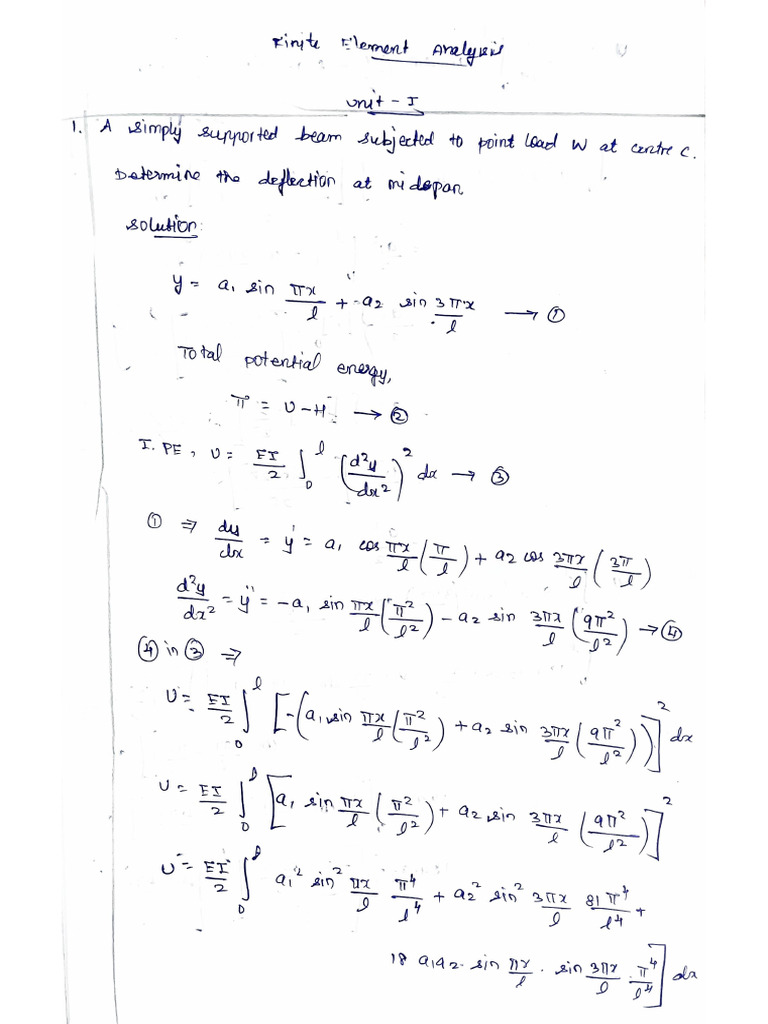 Finite Element Analysis
Unit - I
1. A simply supported beam subjected to point load W at centre C.
Determine the deflection at midspan
Solution:
y = a₁ sin πx/l + a₂ sin 3πx/l → ①
Total potential energy,
π = U - H → ②
I. PE, U = EI/2 ∫₀ˡ (d²y/dx²)² dx → ③
① ⇒ dy/dx = y' = a₁ cos πx/l (π/l) + a₂ cos 3πx/l (3π/l)
d²y/dx² = y'' = -a₁ sin πx/l (π²/l²) - a₂ sin 3πx/l (9π²/l²) → ④
④ in ③ ⇒
U = EI/2 ∫₀ˡ [-(a₁ sin πx/l (π²/l²) + a₂ sin 3πx/l (9π²/l²))]² dx
U = EI/2 ∫₀ˡ [a₁ sin πx/l (π²/l²) + a₂ sin 3πx/l (9π²/l²)]²
U = EI/2 ∫₀ˡ a₁² sin² πx/l π⁴/l⁴ + a₂² sin² 3πx/l 81π⁴/l⁴ +
18 a₁a₂ . sin πx/l . sin 3πx/l . π⁴/l⁴] dx